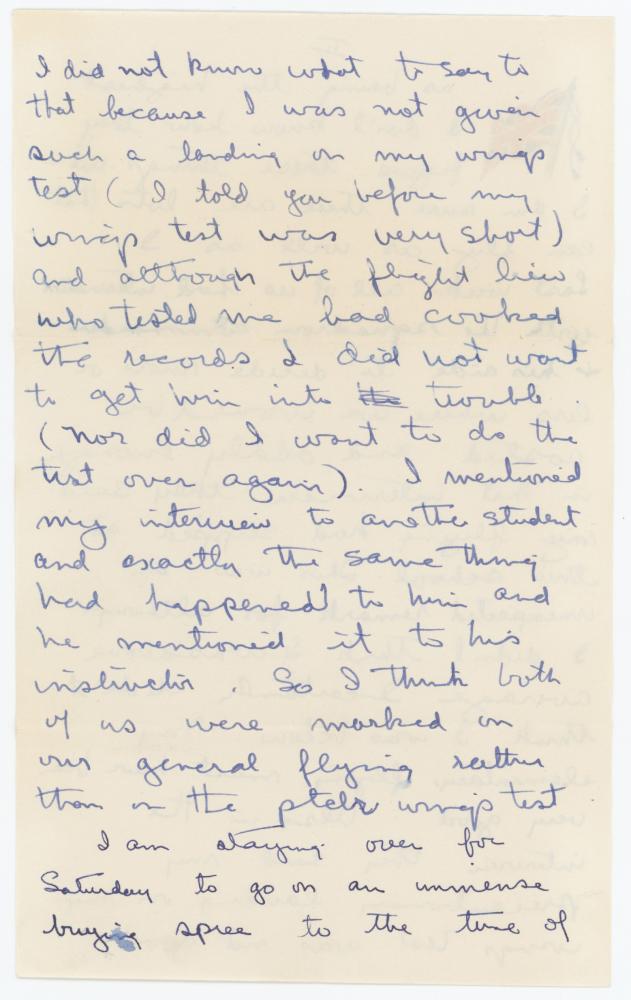 I did not know what to say to
that because I was not given
such a landing on my wings
test (I told you before my
wings test was very short)
and although the flight lieu
who tested me had cooked
the records I did not want
to get him into the trouble.
(nor did I want to do the
test over again). I mentioned
my interview to another student
and exactly the same thing
had happened to him and
he mentioned it to his
instructor. So I think both
of us were marked on
our general flying rather
than on the wings test
I am staying over for
Saturday to go on an immense
buying spree to the tune of